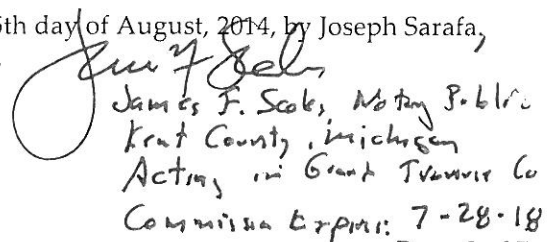 5th day of August, 2014, by Joseph Sarafa,
James F. Scales, Notary Public
Kent County, Michigan
Acting in Grand Traverse Co
Commission Expires: 7-28-18